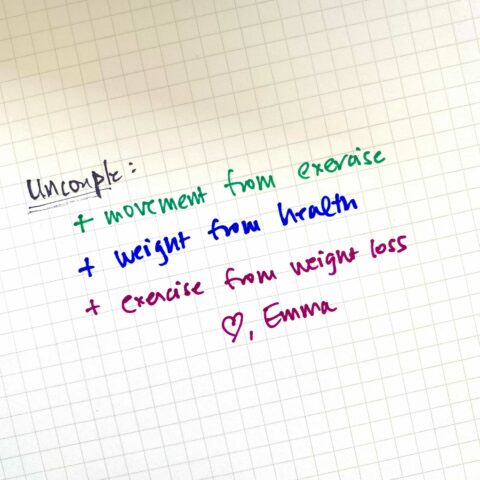 Uncouple:
+ movement from exercise
+ weight from health
+ exercise from weight loss
♡, Emma